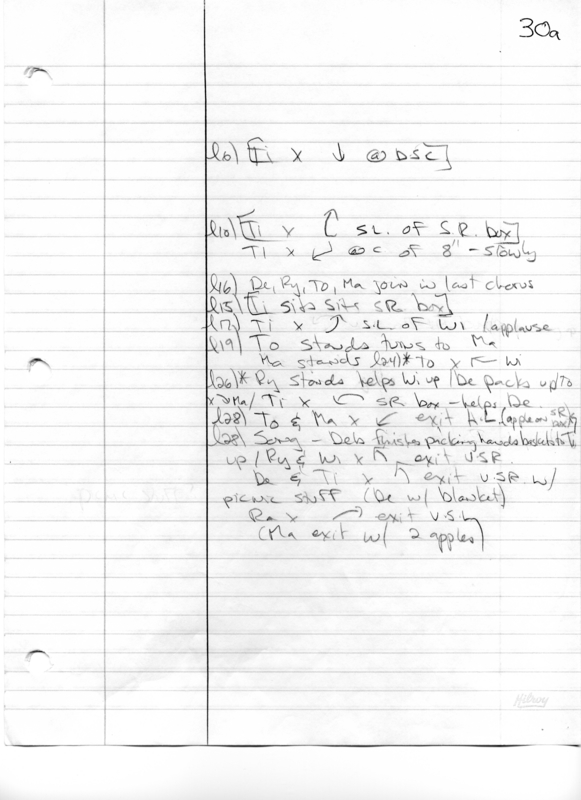 30a
l6) [Ti x ↓ @ DSC]
l10) [Ti x ↑ S.L. OF S.R. box]
Ti x ↙ @ C OF 8" - slowly
l16) De, Ry, To, Ma join in last chorus
l15) [Ti sits site SR box]
l17) Ti x ↗ S.L. OF Wi /applause
l19) To stands turns to Ma
Ma stands l24)* To x ↖ Wi
l26)* Ry stands helps Wi up / De packs up/To
x ↘ Ma/ Ti x ← SR box - helps De
l28) To & Ma x ↙ exit A.L. (apple on SR box)
l28) Song - Deb finishes picking hands basket to Ti
up / Ry & Wi x ↖ exit USR
De & Ti x ↖ exit U.S.R. w/
picnic stuff (De w/ blanket)
Ra x → exit U.S.L
(Ma exit w/ 2 apples)
Hilroy